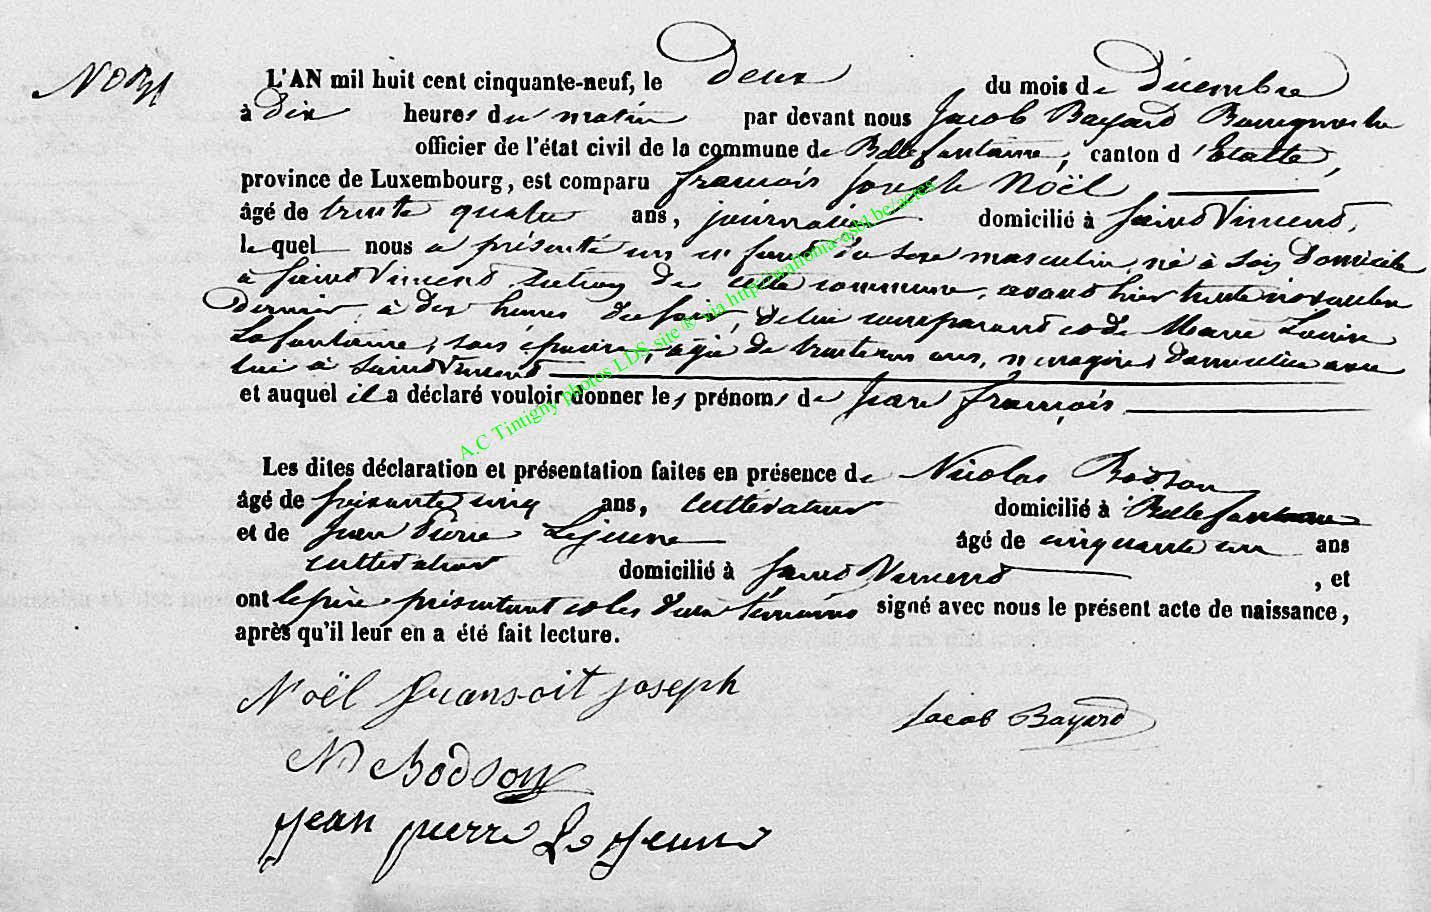 No 31
L'AN mil huit cent cinquante-neuf, le deux du mois de Décembre
à dix heures du matin par devant nous Jacob Bayard Bourgmestre
officier de l'état civil de la commune de Bellefontaine, canton d'Etalle,
province de Luxembourg, est comparu françois Joseph Noël
âgé de trente quatre ans, journalier domicilié à Saint Vincent,
lequel nous a présenté un enfant du sexe masculin, né à son domicile
à Saint Vincent section de cette commune, avant hier trente novembre
dernier, à dix heures du soir, de lui comparant et de Marie Louise
Lafontaine, son épouse, âgée de trente un ans, ménagère domiciliée avec
lui à Saint Vincent
et auquel il a déclaré vouloir donner les prénoms de Jean françois
Les dites déclaration et présentation faites en présence de Nicolas Bodson
âgé de soixante cinq ans, cultivateur domicilié à Bellefontaine
et de Jean Pierre Lejeune âgé de cinquante un ans
cultivateur domicilié à Saint Vincent , et
ont le père présentant et les deux témoins signé avec nous le présent acte de naissance,
après qu'il leur en a été fait lecture.
Noël fransoit joseph
Jacob Bayard
Ns Bodson
jean pierre Le jeune
A.C Tintigny photos LDS site ® via http://wanoma-asbl.be/actes